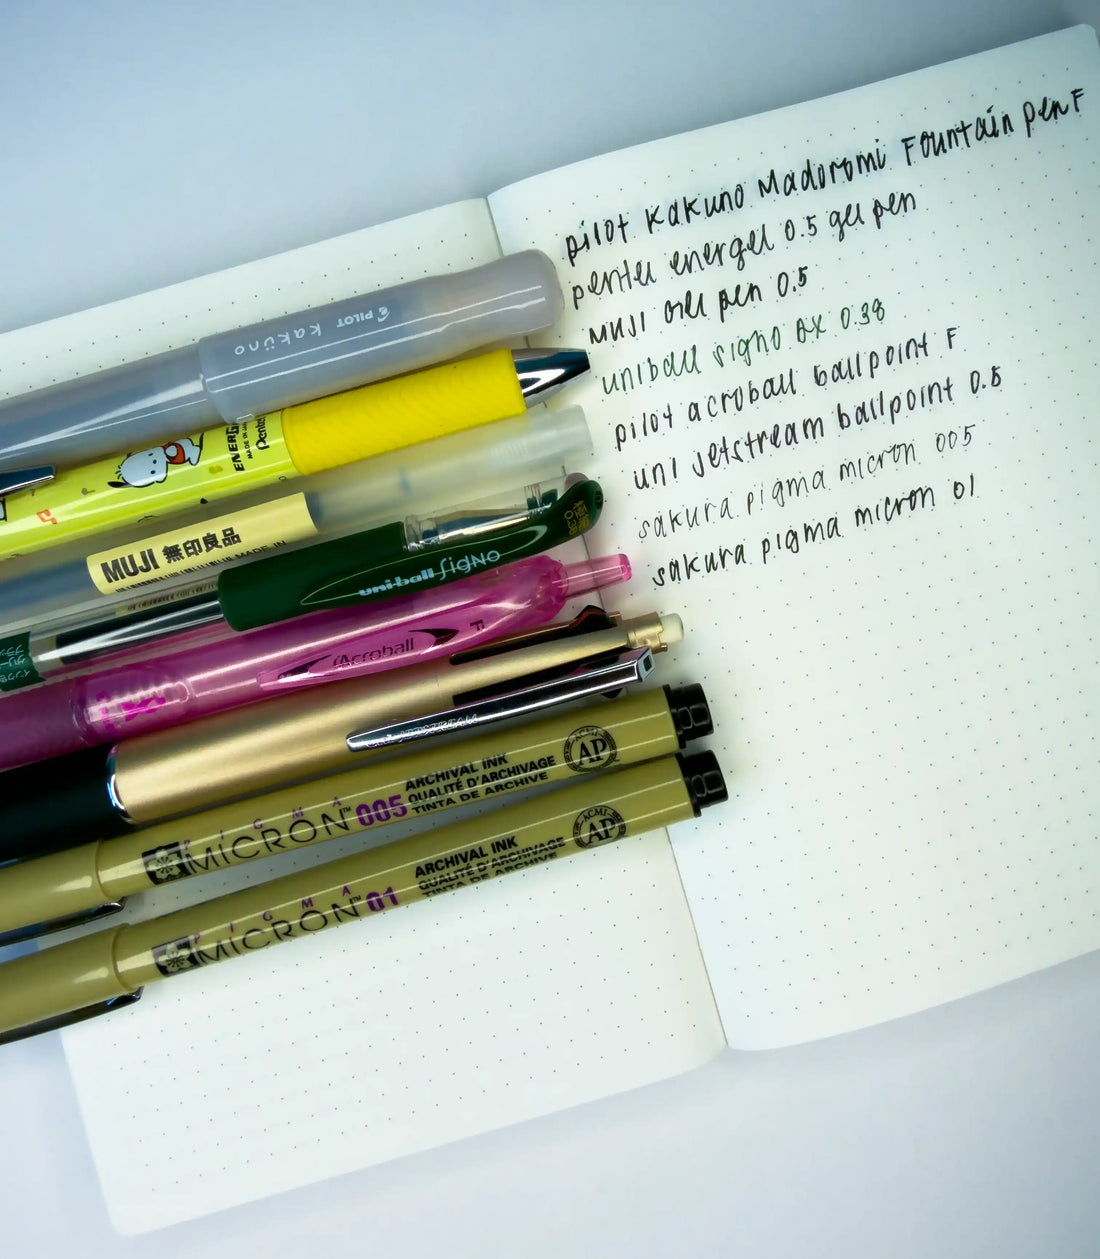 pilot Kakuno Madoromi Fountain pen F
pentel energel 0.5 gel pen
MUJI gel pen 0.5
uniball signo DX 0.38
pilot acroball ballpoint F
uni jetstream ballpoint 0.5
sakura pigma micron 005
sakura pigma micron 01
PILOT kaküno
ENERGEL
MADE IN JAPAN
Pentel
MUJI 無印良品
MADE IN
uni-ball signo
0.38
Acroball F
JETSTREAM
PIGMA
MICRON™ 005
ARCHIVAL INK
QUALITÉ D'ARCHIVAGE
TINTA DE ARCHIVE
ACMI
AP
PIGMA
MICRON™ 01
ARCHIVAL INK
QUALITÉ D'ARCHIVAGE
TINTA DE ARCHIVE
ACMI
AP